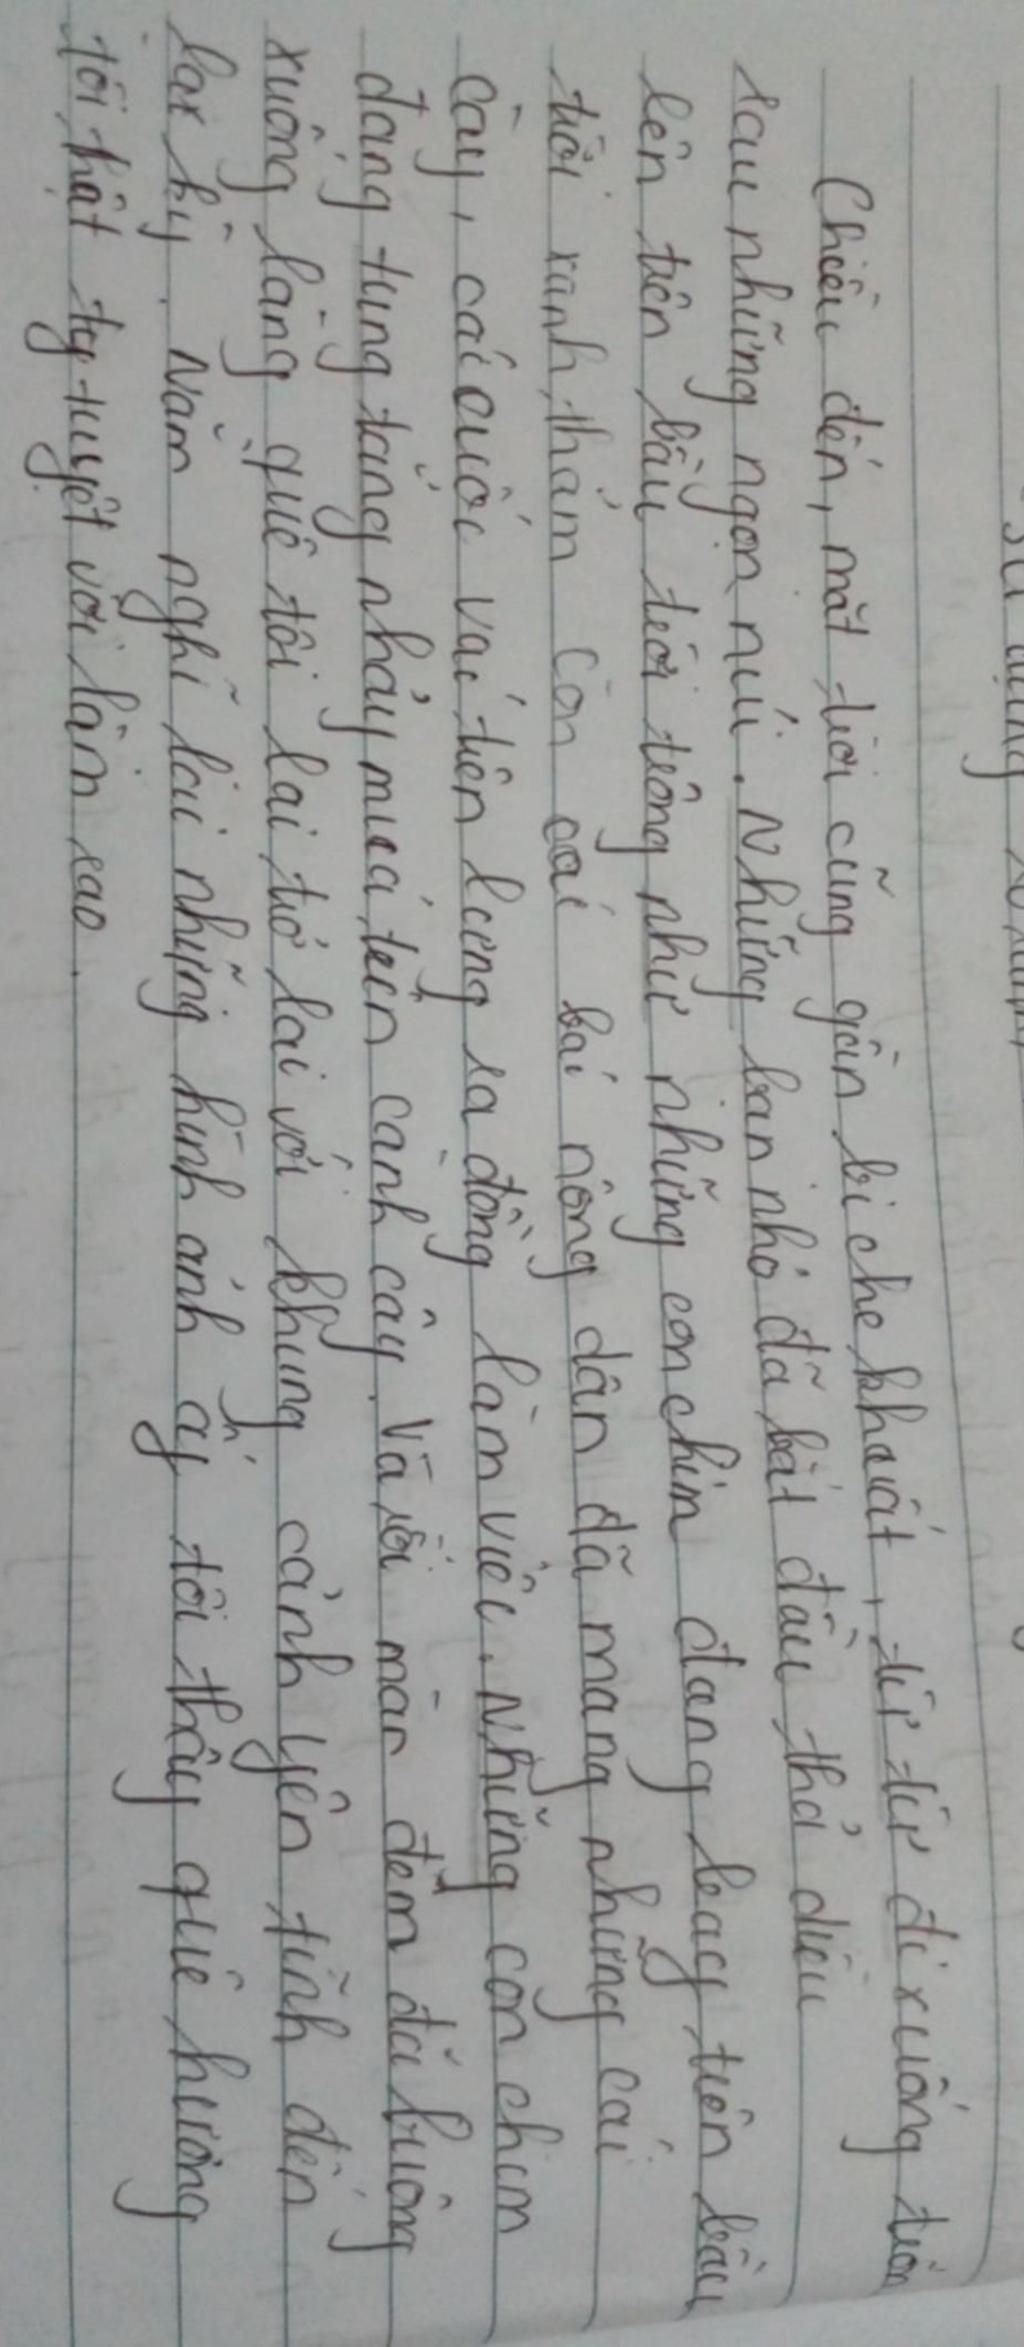 Chiều đến, mặt trời cũng gần bị che khuất, từ từ đi xuống trốn
sau những ngọn núi. Những bạn nhỏ đã bắt đầu thả diều
lên trên bầu trời trông như những con chim đang bay trên bầu
trời xanh thẳm. Còn các bác nông dân đã mang những cái
cày, cái cuốc vác trên lưng ra đồng làm việc. Những con chim
đang tung tăng nhảy múa trên cành cây. Và rồi màn đêm đã buông
xuống làng quê tôi lại trở lại với khung cảnh yên tĩnh đến
lạ kỳ. Nằm nghĩ lại những hình ảnh ấy tôi thấy quê hương
tôi thật tuyệt vời làm sao.